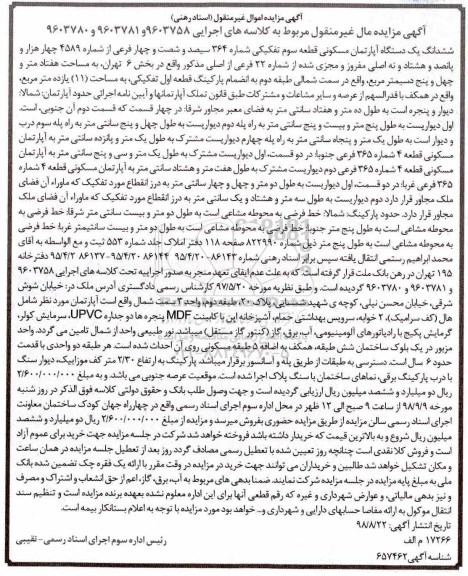 آگهی مزایده اموال غیرمنقول (اسناد رهنی)
آگهی مزایده مال غیرمنقول مربوط به کلاسه های اجرایی ۹۶۰۳۷۵۸و ۹۶۰۳۷۸۱ و ۹۶۰۳۷۸۰
ششدانگ یک دستگاه آپارتمان مسکونی قطعه سوم تفکیکی شماره ۳۶۴ سیصد و شصت و چهار فرعی از شماره ۴۵۸۹ چهار هزار و
پانصد و هشتاد و نه اصلی مفروز و مجزی شده از شماره ۲۲ فرعی از اصلی مذکور واقع در بخش ۶ تهران، به مساحت هفتاد متر و
چهل و پنج دسیمتر مربع، واقع در سمت شمالی طبقه دوم به انضمام پارکینگ قطعه اول تفکیکی، به مساحت (۱۱) یازده متر مربع،
واقع در همکف با قدرالسهم از عرصه و سایر مشاعات و مشترکات طبق قانون تملک آپارتمانها و آیین نامه اجرایی حدود آپارتمان: شمالا:
دیوار و پنجره است به طول ده متر و هفتاد سانتی متر به فضای معبر مجاور شرقا: در چهار قسمت که قسمت دوم آن جنوبی، است.
اول دیواریست به طول پنج متر و بیست و پنج سانتی متر به راه پله دوم دیواریست به طول چهل و پنج سانتی متر به راه پله سوم درب
و دیوار است به طول یک متر و پنجاه سانتی متر به راه پله چهارم دیواریست مشترک به طول یک متر و پانزده سانتی متر به آپارتمان
مسکونی قطعه ۴ شماره ۳۶۵ فرعی جنوبا: در دو قسمت، اول دیواریست مشترک به طول یک متر و سی و پنج سانتی متر به آپارتمان
مسکونی قطعه ۴ شماره ۳۶۵ فرعی دوم دیواریست مشترک به طول هفت متر و هشتاد سانتی متر به آپارتمان مسکونی قطعه ۴ شماره
۳۶۵ فرعی غربا: در دو قسمت، اول دیواریست به طول دو متر و چهل و چهار سانتی متر به درز انقطاع مورد تفکیک که ماوراء آن فضای
ملک مجاور قرار دارد دوم دیواریست به طول سه متر و هشتاد و یک سانتی متر به درز انقطاع مورد تفکیک که ماوراء آن فضای ملک
مجاور قرار دارد. حدود پارکینگ: شمالا: خط فرضی به محوطه مشاعی است به طول دو متر و بیست سانتی متر شرقا: خط فرضی به
محوطه مشاعی است به طول پنج متر جنوبا: خط فرضی به محوطه مشاعی است به طول دو متر و بیست سانتیمتر غربا: خط فرضی
به محوطه مشاعی است به طول پنج متر ذیل شماره ۸۲۲۹۹۰ صفحه ۱۱۸ دفتر املاک جلد شماره ۵۵۳ ثبت و مع الواسطه به آقای
محمد ابراهیم رستمی انتقال یافته سپس برابر اسناد رهنی شماره ۸۶۱۴۳ - ۹۵/۴/۲۰ ۸۶۱۴۴ -۹۵/۴/۲۰ ۸۶۱۳۷-۹۵/۴/۲ دفترخانه
۱۹۵ تهران در رهن بانک ملت قرار گرفته است که به علت عدم ایفای تعهد منجر به صدور اجراییه تحت کلاسه های اجرایی ۹۶۰۳۷۵۸
و ۹۶۰۳۷۸۱ و ۹۶۰۳۷۸۰ گردیده است، و طبق نظریه مورخه ۹۷/۵/۲۰ کارشناس رسمی دادگستری آدرس ملک در: خیابان شوش
شرقی، خیابان محسن نیلی، کوچه ی شهید سنمایی، پلاک ۲۰، طبقه دوم واحد ۳ سمت شمال واقع است آپارتمان مورد نظر شامل
هال (کف سرامیک)، ۲ خوابه، سرویس بهداشتی حمام، آشپزخانه اپن با کابینت MDF پنجره ها دو جداره UPVC، سرمایش کولر،
گرمایش پکیج با رادیاتورهای آلومینیومی، آب، برق، گاز (کنتور گاز مستقل) میباشد. نور طبیعی واحد از شمال تامین می گردد. واحد
مزبور در یک بلوک ساختمان شش طبقه، همکف به اضافه ۵ طبقه مسکونی روی آن احداث شده است. هر طبقه دو واحدی با قدمت
حدود ۶ سال است. دسترسی به طبقات از طریق پله و آسانسور برقرار میباشد. پارکینگ به ارتفاع ۲/۳۰ متر کف موزاییک، دیوار سنگ
با درب پارکینگ برقی، نماهای ساختمان با سنگ پلاک اجرا شده است. موقعیت عرصه جنوبی می باشد، و به مبلغ ۲/۶۰۰/۰۰۰/۰۰۰
ریال دو میلیارد و ششصد میلیون ریال ارزیابی گردیده است و جهت وصول طلب بانک و حقوق دولتی کلاسه فوق الذکر در روز شنبه
مورخه ۹۸/۹/۹ از ساعت ۹ صبح الی ۱۲ ظهر در محل اداره سوم اجرای اسناد رسمی واقع در چهارراه جهان کودک ساختمان معاونت
اجرای اسناد رسمی سالن مزایده از طریق مزایده حضوری بفروش میرسد و مزایده از مبلغ ۲/۶۰۰/۰۰۰/۰۰۰ ریال دو میلیارد و ششصد
میلیون ریال شروع و به بالاترین قیمت که خریدار داشته باشد فروخته خواهد شد شرکت در جلسه مزایده جهت خرید برای عموم آزاد
است و فروش کلا نقدی است چنانچه روز تعیین شده با تعطیل رسمی مصادف گردد روز بعد از تعطیل جلسه مزایده در همان ساعت
و مکان تشکیل خواهد شد طالبین و خریداران می توانند جهت خرید در مزایده در وقت مقرر با ارائه یک فقره چک تضمین شده بانک
ملی به مبلغ پایه مزایده در جلسه مزایده شرکت نمایند. ضمنا بدهی های مربوط به آب، برق، گاز، اعم از حق انشعاب و اشتراک و مصرف
و نیز بدهی مالیاتی، و عوارض شهرداری و غیره که رقم قطعی آنها برای این اداره معلوم نشده بعهده برنده مزایده است و تنظیم سند
انتقال موکول به ارائه مفاصا حسابهای دارایی و شهرداری و.. خواهد بود مورد مزایده با توجه به اعلام بستانکار بیمه است.
تاریخ انتشار آگهی: ۹۸/۸/۲۲
۱۷۲۶۶ م الف
رئیس اداره سوم اجرای اسناد رسمی- نقیبی
شناسه آگهی ۶۵۷۴۶۲